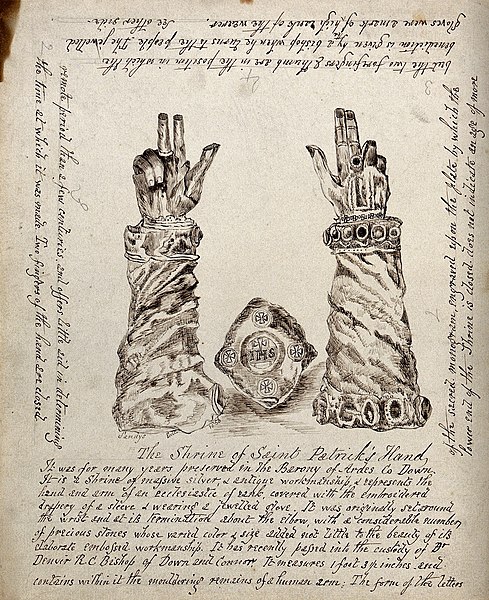 The Shrine of Saint Patrick's Hand,
It was for many years preserved in the Barony of Ardes Co Down.
It is a Shrine of massive silver, & antique workmanship, & represents the
hand and arm of an Ecclesiastic of rank, covered with the embroidered
drapery of a sleeve & wearing a jewelled glove. It was originally set around
the wrist and at its termination about the elbow, with a considerable number
of precious stones whose varied color & size added not little to the beauty of its
elaborate embossed workmanship. It has recently passed into the custody of Dr
Denvir R.C. Bishop of Down and Connor It measures 1 foot 3½ inches and
contains within it the mouldering remains of a human arm; The form of the letters
of the sacred monogram, engraved upon the plate by which the
lower end of the Shrine is closed does not indicate an age of more
remote period than a few centuries and offers little aid in determining
the time at which it was made. Two fingers of the hand are closed
but the two forefingers & thumb are in the position in which the
benediction is given by a bishop when he turns to the people. The jewelled
gloves were a mark of high rank of the wearer. See other side.
IHS
Sandys